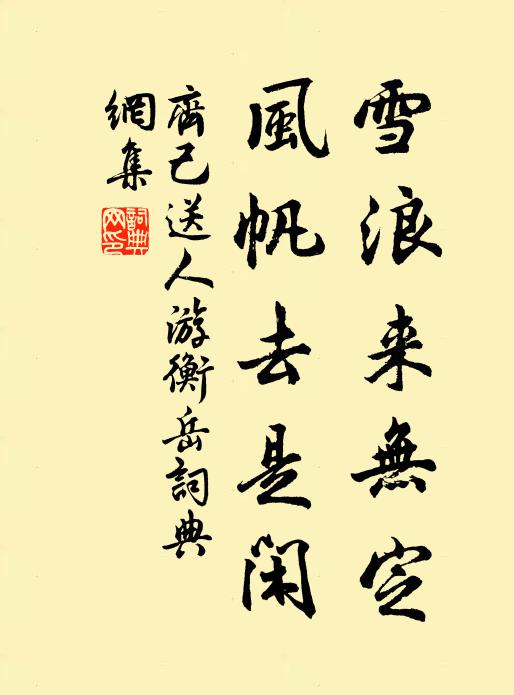 雪浪来無定
風帆去是閑
齊己送人游衡岳詞典
網集
詞典網印